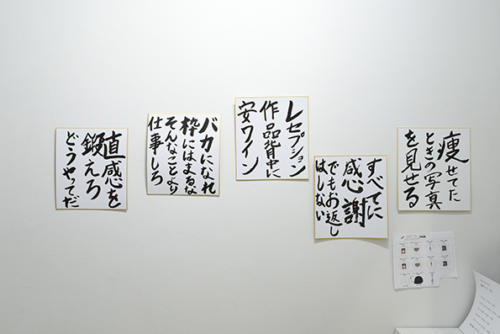 痩せてた
ときの写真
を見せる
すべてに
感謝
でもお返し
はしない
レセプション
作品背中に
安ワイン
バカになれ
枠にはまるな
そんなことより
仕事しろ
直感を
鍛えろ
どうやってだ